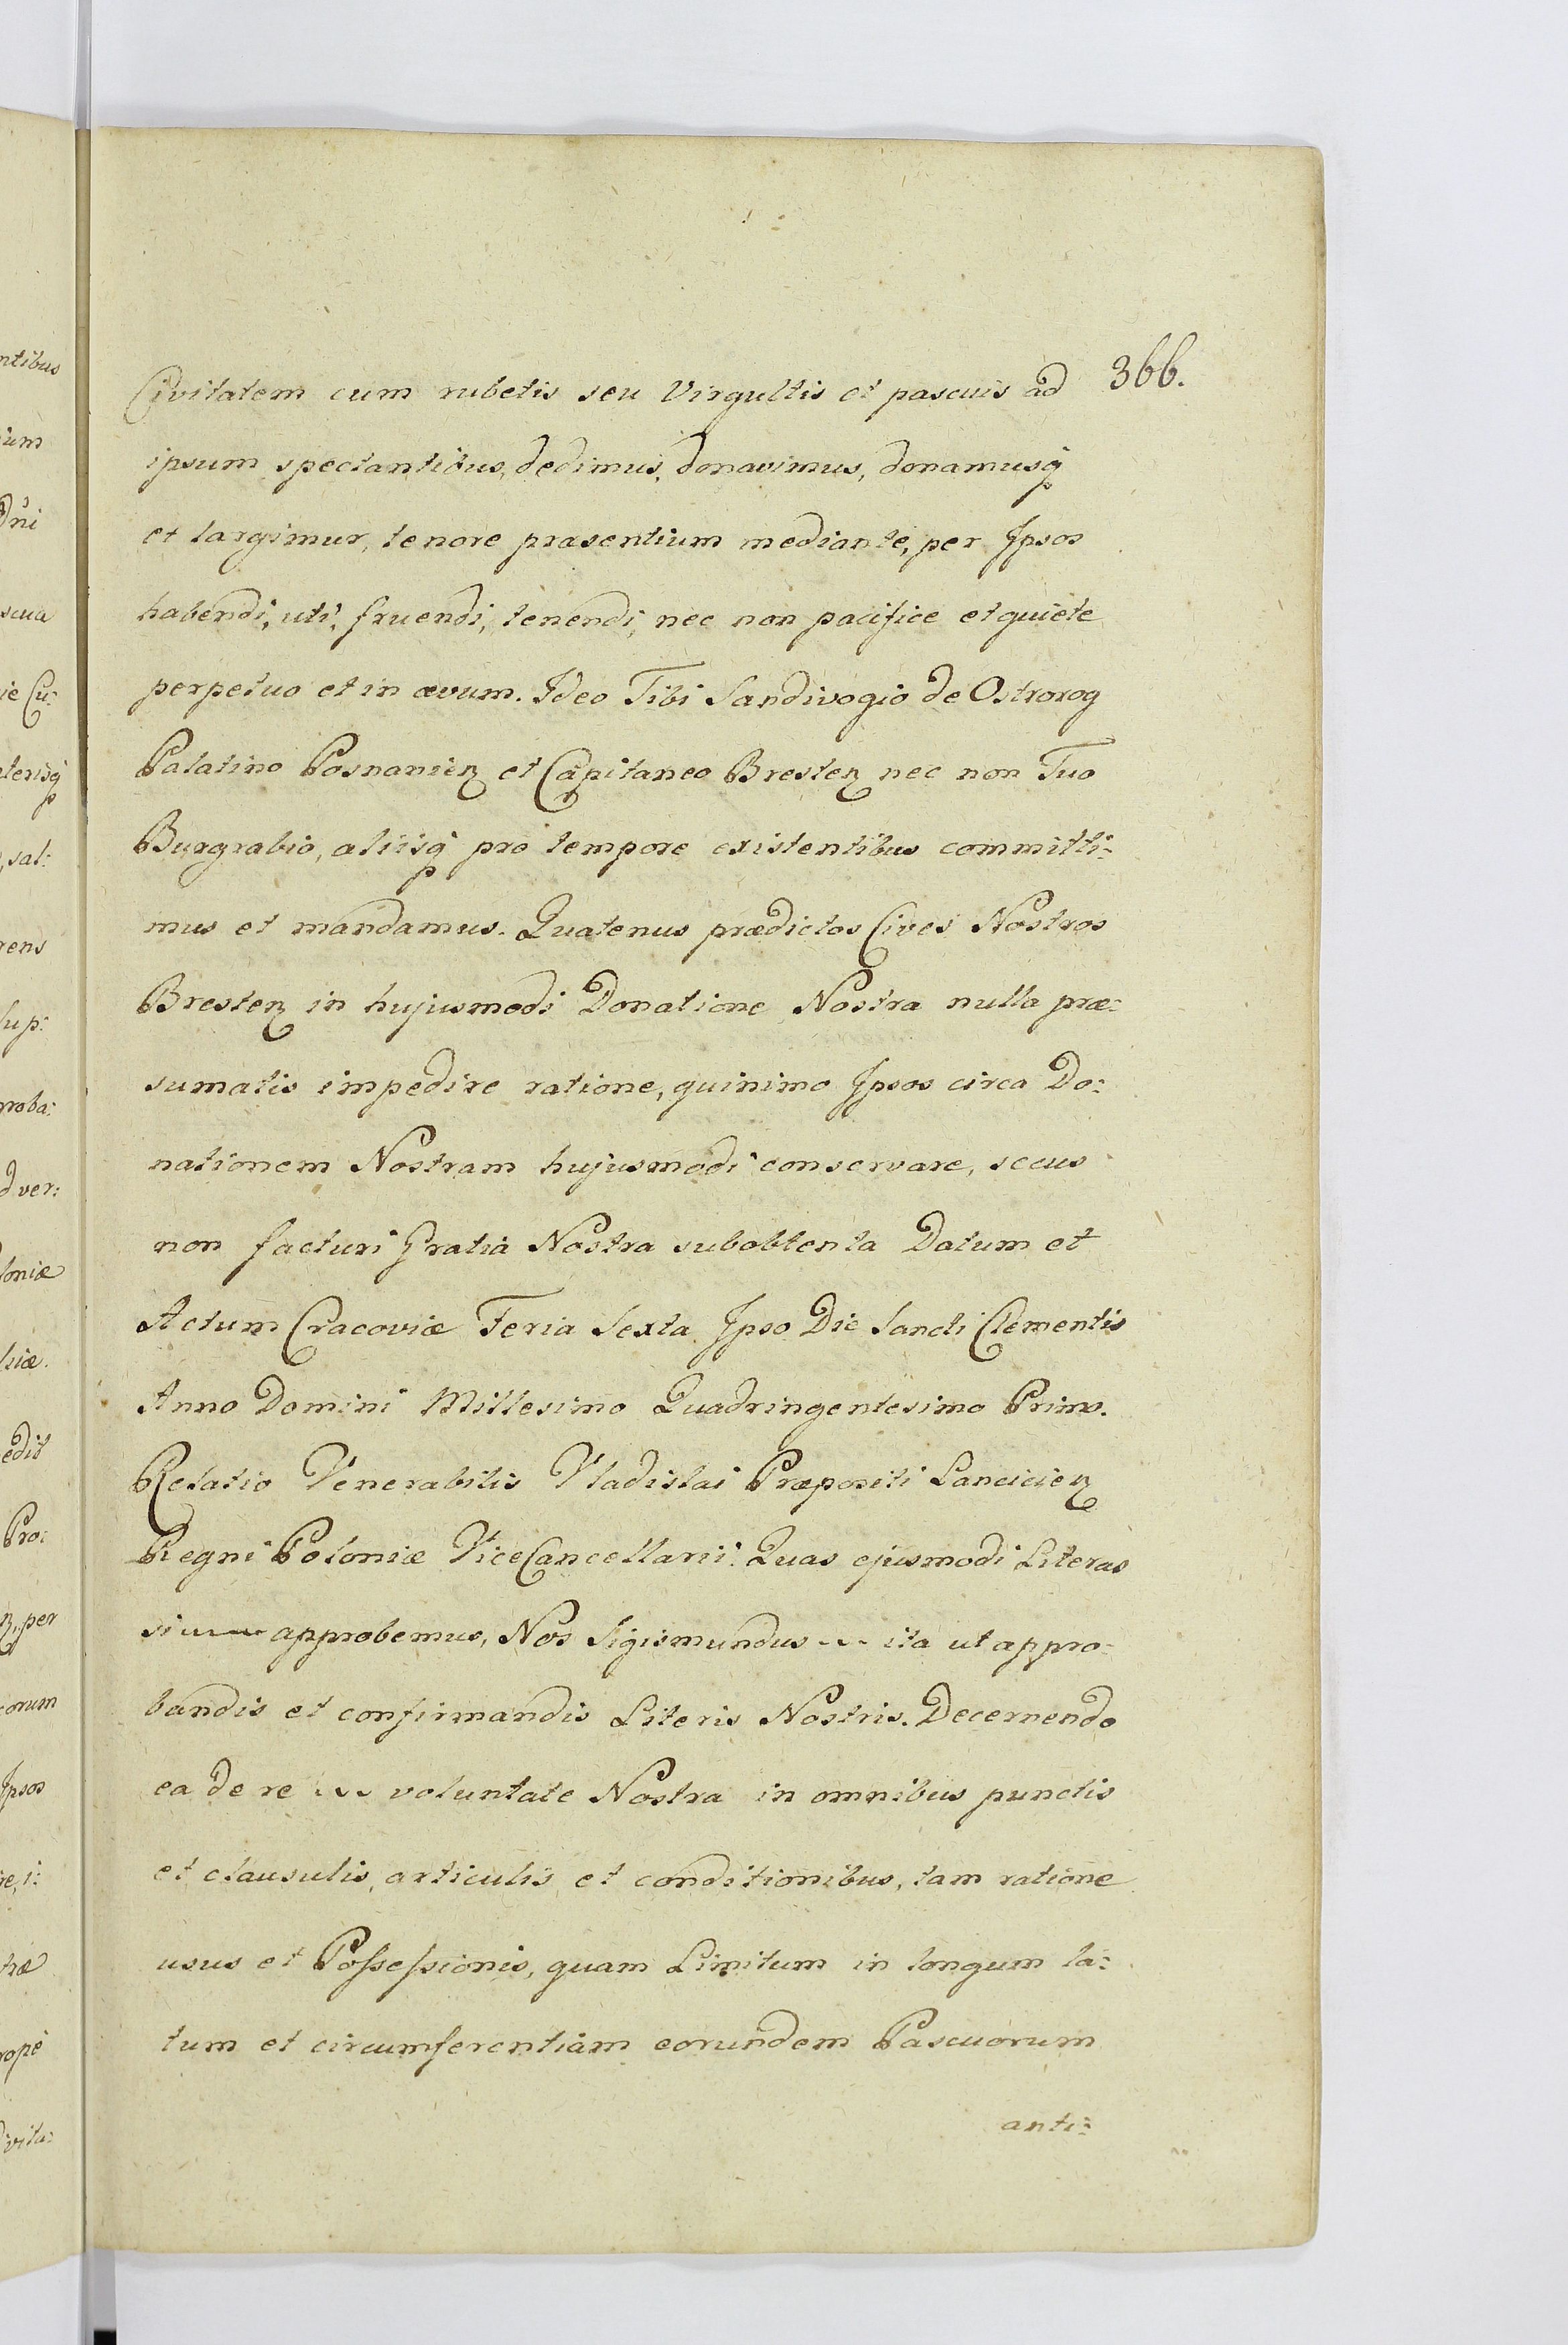 366.
Civitatem cum rubetis seu Virgultis et pascuis ad
ipsum spectantibus, dedimus, donavimus, donamusq
et largimur, tenore præsentium mediante, per Ipsos
habendi, uti, fruendi, tenendi, nec non pacifice et quiete
perpetuo et in ævum. Ideo Tibi Sandivogio de Ostrorog
Palatino Posnanien et Capitaneo Bresten nec non Tuo
Burgrabio, aliisq pro tempore existentibus committi:
mus et mandamus. Quatenus prædictos Cives Nostros
Bresten in hujusmodi Donatione Nostra nulla præ:
sumatis impedire ratione, quinimo Ipsos circa Do:
nationem Nostram hujusmodi conservare, secus
non facturi Gratia Nostra subobtenta Datum et
Actum Cracoviæ Feria Sexta Ipso Die Sancti Clementis
Anno Domini Millesimo Quadringentesimo Primo.
Relatio Venerabilis Vladislai Præpositi Lancicien
Regni Poloniæ ViceCancellarii. Quas ejusmodi Literas
si approbemus, Nos Sigismundus ita ut appro:
bandis et confirmandis Literis Nostris. Decernendo
ea de re voluntate Nostra in omnibus punctis
et clausulis, articulis et conditionibus, tam ratione
usus et Possessionis, quam Limitum in longum la:
tum et circumferentiam eorundem Pascuorum
anti:
ntibus
ium
Dni
scua
ie Cu:
aterisq
, sal:
rens
sup:
proba:
d ver:
loniæ
siæ.
edit
Pro:
, per
corum
Ipsos
re, i:
træ
rope
ivita: